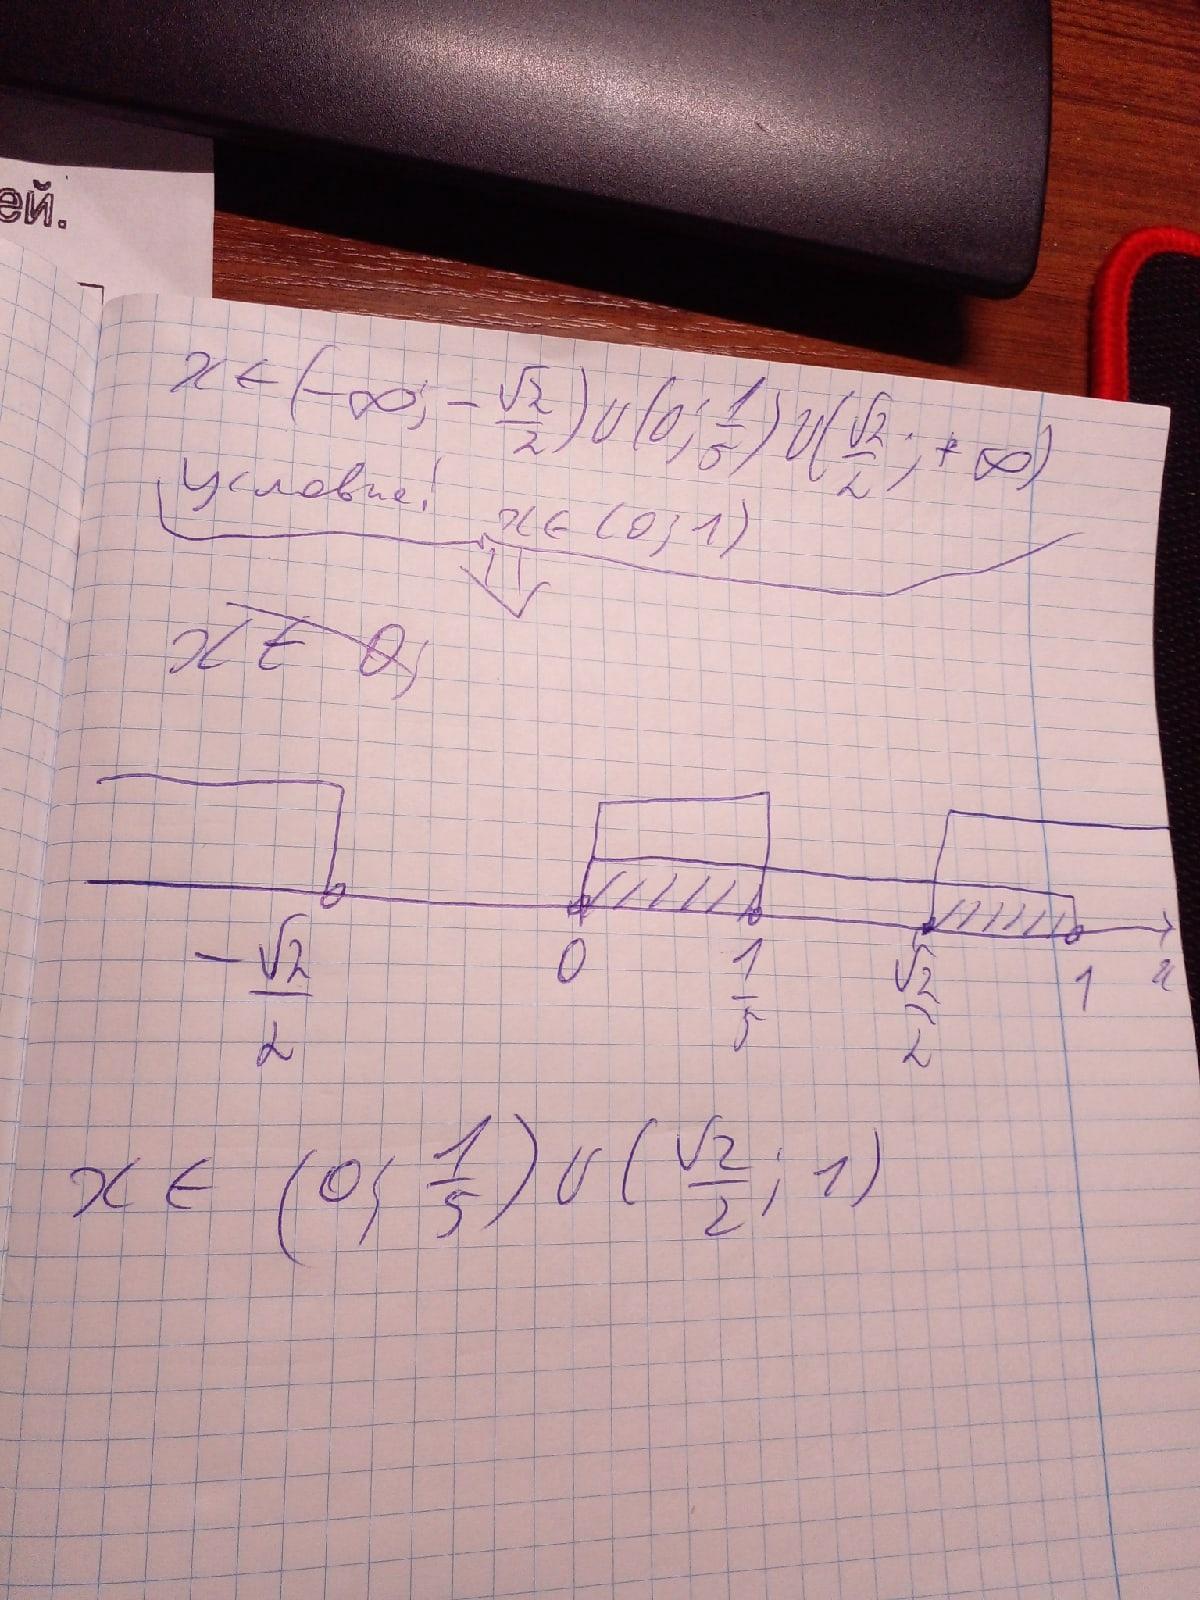 ей.
x ∈ (-∞; -√2/2) ∪ (0; 1/5) ∪ (√2/2; +∞)
Условие!
x ∈ (0; 1)
x ∈ 0;
-√2/2 0 1/5 √2/2 1 x
x ∈ (0; 1/5) ∪ (√2/2; 1)